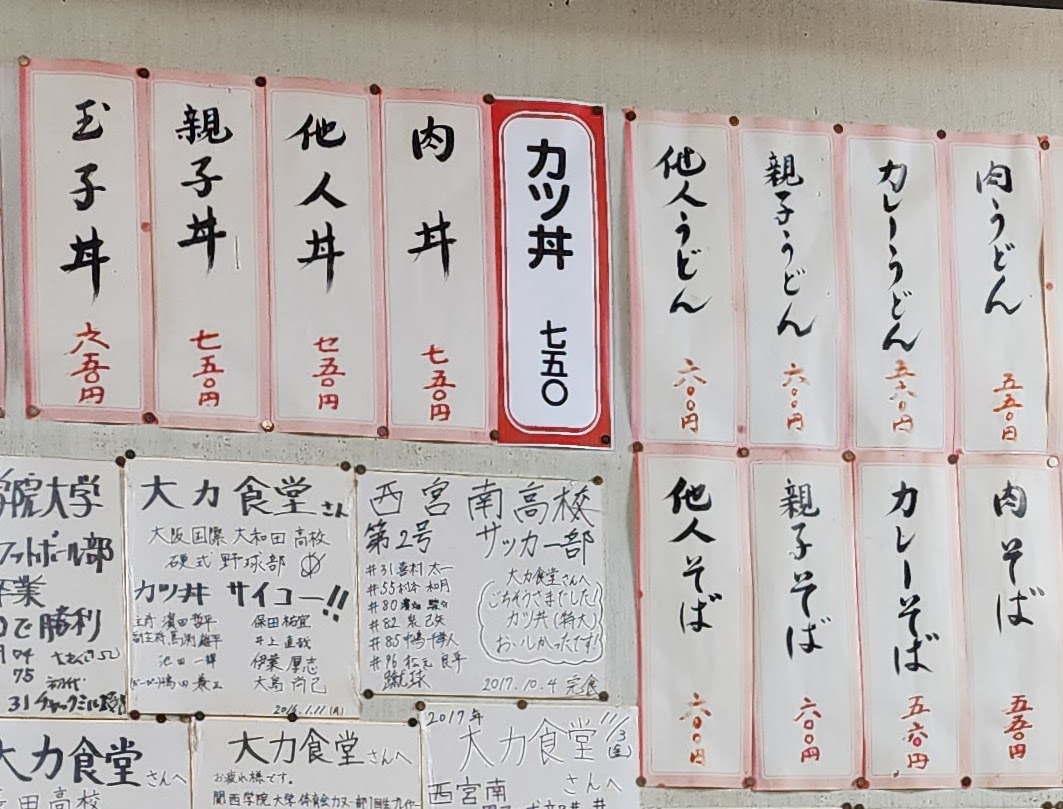 玉子丼 六五〇円
親子丼 七五〇円
他人丼 七五〇円
肉丼 七五〇円
カツ丼 七五〇
他人うどん 六〇〇円
親子うどん 六〇〇円
カレーうどん 五六〇円
肉うどん 五五〇円
他人そば 六〇〇円
親子そば 六〇〇円
カレーそば 五六〇円
肉そば 五五〇円
学院大学
フットボール部
卒業
で勝利
75 初代
大力食堂さん
大阪国際大和田高校
硬式野球部
カツ丼 サイコー!!
主将 濱田哲平
保田祐宜
井上直哉
池田一輝
伊葉厚志
大島尚己
2016.1.11(月)
西宮南高校
サッカー部
第2号
#31 喜村太一
#55 村本和月
#80
#82
#85
#96 松元良平
蹴球
大力食堂さんへ
ごちそうさまでした!
カツ丼(特大)
おいしかったです!
2017.10.4 完食
大力食堂さんへ
田高校
大力食堂さんへ
お疲れ様です。
関西学院大学体育会カヌー部
2017年 11/3(金)
大力食堂
さんへ
西宮南